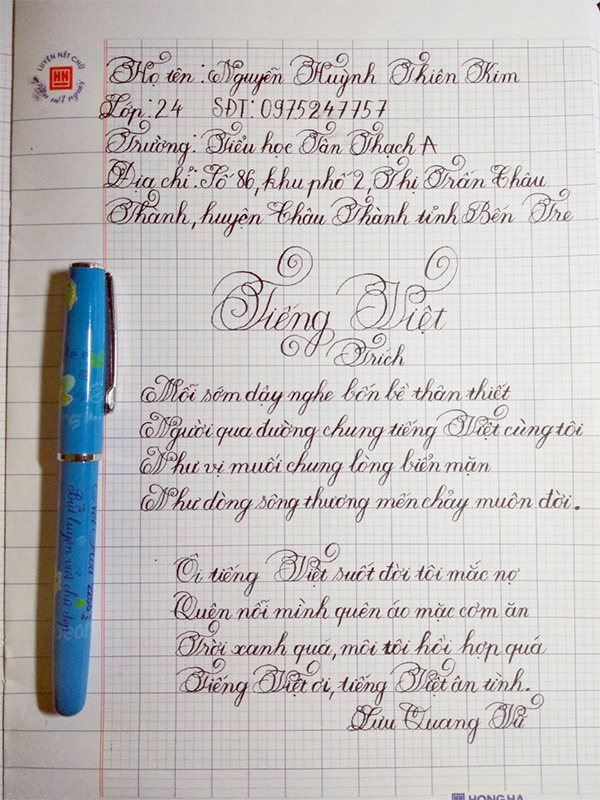 LUYỆN NÉT CHỮ
HH
Rèn nết người
Họ tên: Nguyễn Huỳnh Thiên Kim
Lớp: 24 SĐT: 0975247757
Trường: Tiểu học Tân Thạch A
Địa chỉ: Số 86, khu phố 2, Thị Trấn Châu
Thành, huyện Châu Thành tỉnh Bến Tre
Tiếng Việt
Trích
Mỗi sớm dậy nghe bốn bề thân thiết
Người qua đường chung tiếng Việt cùng tôi
Như vị muối chung lòng biển mặn
Như dòng sông thương mến chảy muôn đời.
Ôi tiếng Việt suốt đời tôi mắc nợ
Quên nỗi mình quên áo mặc cơm ăn
Trời xanh quá, môi tôi hồi hợp quá
Tiếng Việt ơi, tiếng Việt ân tình.
Lưu Quang Vũ
Bút luyện viết chữ đẹp
HONG HA